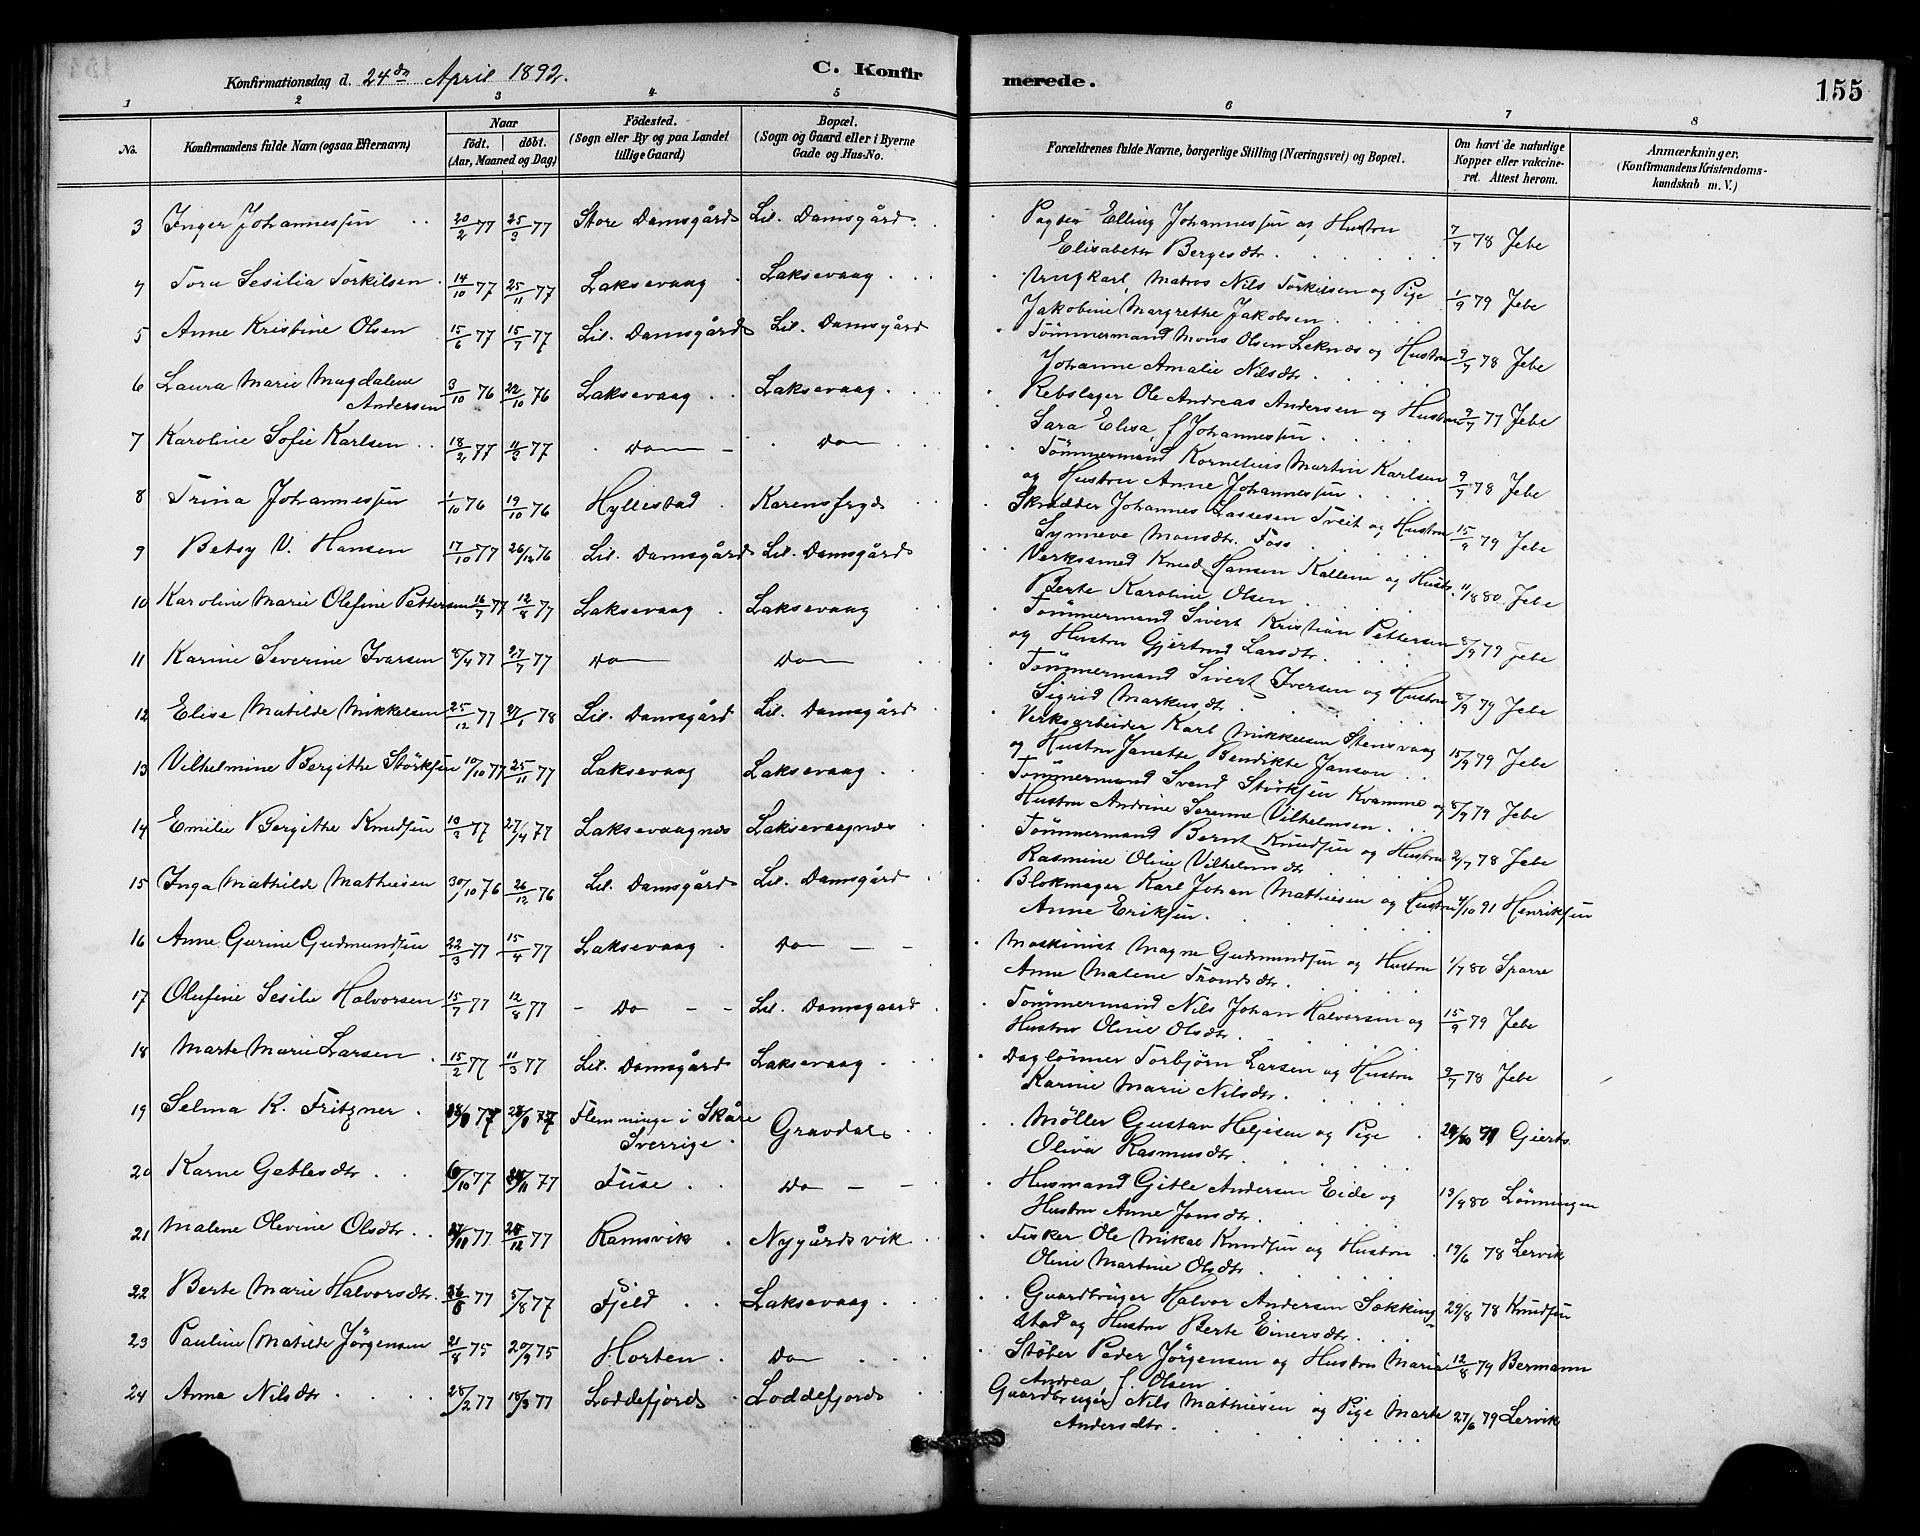 Konfirmationsdag d. 24de April 1892.
C. Konfirmerede.
155
1 2 3 4 5 6 7 8
No.
Konfirmandens fulde Navn (ogsaa Efternavn)
Naar
født. døbt.
(Aar, Maaned og Dag)
Födested.
(Sogn eller By og paa Landet
tillige Gaard)
Bopæl.
(Sogn og Gaard eller i Byerne
Gade og Hus-No.
Forældrenes fulde Navne, borgerlige Stilling (Næringsvei) og Bopæl.
Om havt de naturlige
Kopper eller vakcine-
ret. Attest herom.
Anmærkninger.
(Konfirmandens Kristendoms-
kundskab m. V.)
3 Inger Johannessen 20/2 77 25/3 77 Store Damsgård Lil. Damsgård Pagter Elling Johannessen og Hustru 7/7 78 Jebe
Elisabeth Bergesdtr.
4 Tora Sesilia Torkilsen 14/10 77 25/11 77 Laksevaag Laksevaag Ungkarl, Matros Nils Torkilsen og Pige 1/9 79 Jebe
Jakobine Margrethe Jakobsen
5 Anne Kristine Olsen 15/6 77 15/7 77 Lil. Damsgård Lil. Damsgård Tömmermand Mons Olsen Leknes og Hustru 9/7 78 Jebe
Johanne Amalie Nilsdtr.
6 Laura Marie Magdalene 3/10 76 22/10 76 Laksevaag Laksevaag Rebslager Ole Andreas Andersen og Hustru 9/7 77 Jebe
Andersen
Sara Elisa, f Johannessen
7 Karoline Sofie Karlsen 18/2 77 11/3 77 Do Do Tömmermand Kornelius Martin Karlsen 9/7 78 Jebe
og Hustru Anne Johannessen
8 Trina Johannessen 1/10 76 19/10 76 Hyllestad Karensfryd Skrædder Johannes Lassesen Tveit og Hustru 15/9 79 Jebe
Synneve Monsdtr. Foss
9 Betsy V. Hansen 17/10 77 26/12 76 Lil. Damsgård Lil. Damsgård Verkssmed Knud Hansen Kallem og Hustr. 11/8 80 Jebe
Berte Karoline Olsen
10 Karoline Marie Olefine Pettersen 16/7 77 12/8 77 Laksevaag Laksevaag Tömmermand Sivert Kristian Pettersen 8/9 79 Jebe
og Hustru Gjertrud Larsdtr.
11 Karine Severine Ivarsen 8/4 77 27/7 77 Do Do Tömmermand Sivert Iversen og Hustru 8/9 79 Jebe
Sigrid Markusdtr.
12 Elise Matilde Mikkelsen 25/12 77 27/1 78 Lil. Damsgård Lil. Damsgård Verksarbeider Karl Mikkelsen Stensvaag 15/9 79 Jebe
og Hustru Janette Bendikte Janson
13 Vilhelmine Bergithe Störksen 10/10 77 25/11 77 Laksevaag Laksevaag Tömmermand Svend Störksen Kvamme og 8/9 79 Jebe
Hustru Andrine Serenne Vilhelmsen
14 Emilie Bergithe Knudsen 10/2 77 27/4 77 Laksevaagnes Laksevaagnes Tömmermand Bernt Knudsen og Hustru 2/7 78 Jebe
Rasmine Oline Vilhelmsdtr
15 Inga Mathilde Mathiesen 30/10 76 26/12 76 Lil. Damsgård Lil. Damsgård Blokmager Karl Johan Mathiesen og Hustru 4/10 91 Henriksen
Anne Eriksen
16 Anne Gurine Gudmundsen 22/3 77 15/4 77 Laksevaag Do Maskinist Magne Gudmundsen og Hustru 1/7 80 Sparre
Anne Malene Trondsdtr.
17 Olefine Sesilie Halvorsen 15/7 77 12/8 77 Do Lil. Damsgaard Tömmermand Nils Johan Halvorsen og 15/9 79 Jebe
Hustru Oline Olsdtr.
18 Marte Marie Larsen 15/2 77 11/3 77 Lil. Damsgård Laksevaag Daglönner Torbjörn Larsen og Hustru 9/7 78 Jebe
Karine Marie Nilsdtr.
19 Selma K. Fritzner 77 77 Flemminge i Skåre Gravdal Møller Gustav Heljesen og Pige Gierts.
Sverrige
Oliva Rasmusdtr.
20 Karne Getlesdtr 6/10 77 77 Fuse Do Husmand Gitle Andersen Eide og 13/9 80 Lönningen
Hustru Anne Jonsdtr.
21 Malene Olevine Olsdtr. 77 77 Ramsvik Nygårdsvik Fisker Ole Mikal Knudsen og Hustru 19/6 78 Lervik
Oline Martine Olsdtr.
22 Berte Marie Halvorsdtr. 77 5/8 77 Fjeld Laksevaag Gaardbruger Halvor Andersen Sækking- 29/8 78 Knudsen
stad og Hustru Berte Einersdtr.
23 Pauline Matilde Jörgensen 21/8 75 20/9 75 Horten Do Stöber Peder Jörgensen og Hustru Maria 12/8 79 Bermann
Andrea f. Olsen
24 Anna Nilsdtr 28/2 77 18/3 77 Loddefjord Loddefjord Gaardbruger Nils Mathiesen og Pige Marte 27/6 79 Lervik
Andersdtr.